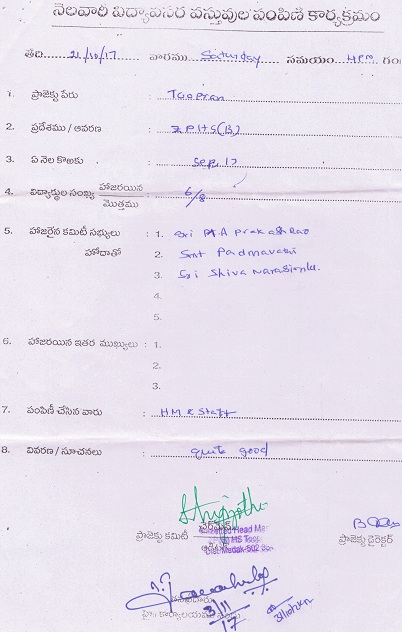 నెలవారి విద్యావసర వస్తువుల పంపిణి కార్యక్రమం
తేది 21/10/17 వారము Saturday సమయం 4 P.M. గం
1. ప్రాజెక్టు పేరు : Toopran
2. ప్రదేశము / ఆవరణ : ZPHS(B)
3. ఏ నెల కొఱకు : Sep. 17
4. విద్యార్థుల సంఖ్య హాజరయిన : 6/8
మొత్తము
5. హాజరైన కమిటీ సభ్యులు : 1. Sri P.A Prakash Rao
హోదాతో 2. Smt Padmavathi
3. Sri Shiva
4.
5.
6. హాజరయిన ఇతర ముఖ్యులు : 1.
2.
3.
7. పంపిణీ చేసిన వారు : HM & Staff
8. వివరణ / సూచనలు : quite good
ప్రాజెక్టు కమిటీ చైర్మన్ ప్రాజెక్టు డైరెక్టర్
Head
HS Toop
Dist. Medak-502
3/11
17